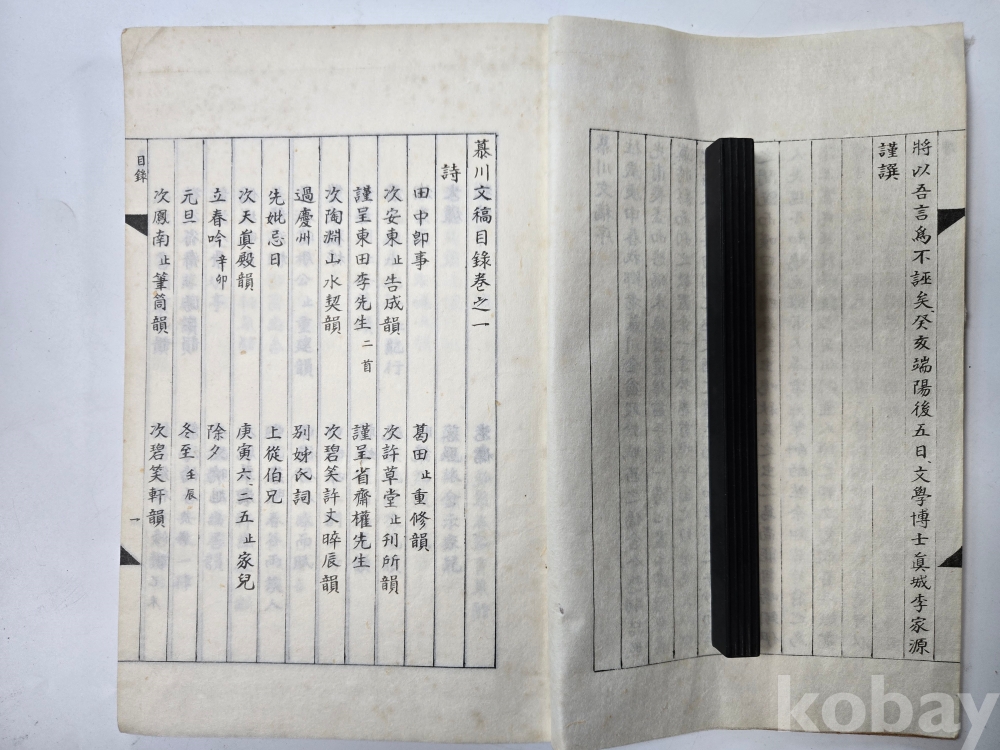 將以吾言爲不誣矣癸亥端陽後五日文學博士眞城李家源
謹譔
慕川文稿目錄卷之一
詩
田中卽事 葛田止重修韻
次安東止告成韻 次許草堂止刊所韻
謹呈東田李先生二首 謹呈省齋權先生
次陶淵山水契韻 次碧笑許丈晬辰韻
過慶州 別姊氏詞
先妣忌日 上從伯兄
次天眞殿韻 庚寅六二五止家兒
立春吟辛卯 除夕
元旦 冬至壬辰
次鳳南止筆筒韻 次碧笑軒韻
目錄
一
kobay